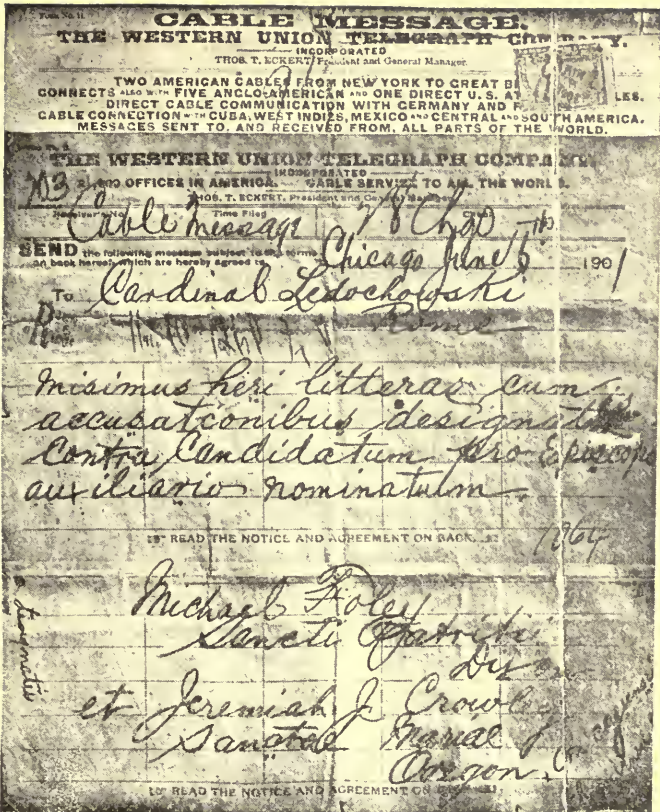 Form No. 11.
CABLE MESSAGE.
THE WESTERN UNION TELEGRAPH COMPANY.
INCORPORATED
THOS. T. ECKERT, President and General Manager.
TWO AMERICAN CABLES FROM NEW YORK TO GREAT
CONNECTS ALSO WITH FIVE ANGLO-AMERICAN AND ONE DIRECT U.S.
DIRECT CABLE COMMUNICATION WITH GERMANY AND
CABLE CONNECTION WITH CUBA, WEST INDIES, MEXICO AND CENTRAL AND SOUTH AMERICA.
MESSAGES SENT TO, AND RECEIVED FROM, ALL PARTS OF THE WORLD.
THE WESTERN UNION TELEGRAPH COMPANY
INCORPORATED
OFFICES IN AMERICA. CABLE SERVICE TO ALL THE WORLD.
THOS. T. ECKERT, President and General Manager
Receiver's No. Time Filed
Cable message
SEND the following message subject to the terms
on back hereof, which are hereby agreed to
Chicago June 6 1901
To Cardinal Ledochowski
Rome
misimus heri litteras cum
accusatconibus
contra Candidatum pro Episcopo
auxiliario nominatum.
READ THE NOTICE AND AGREEMENT ON BACK.
Michael Foley
Sancti Patritii
et Jeremiah J Crowley
Sanctae Mariae
Oregon.
READ THE NOTICE AND AGREEMENT ON